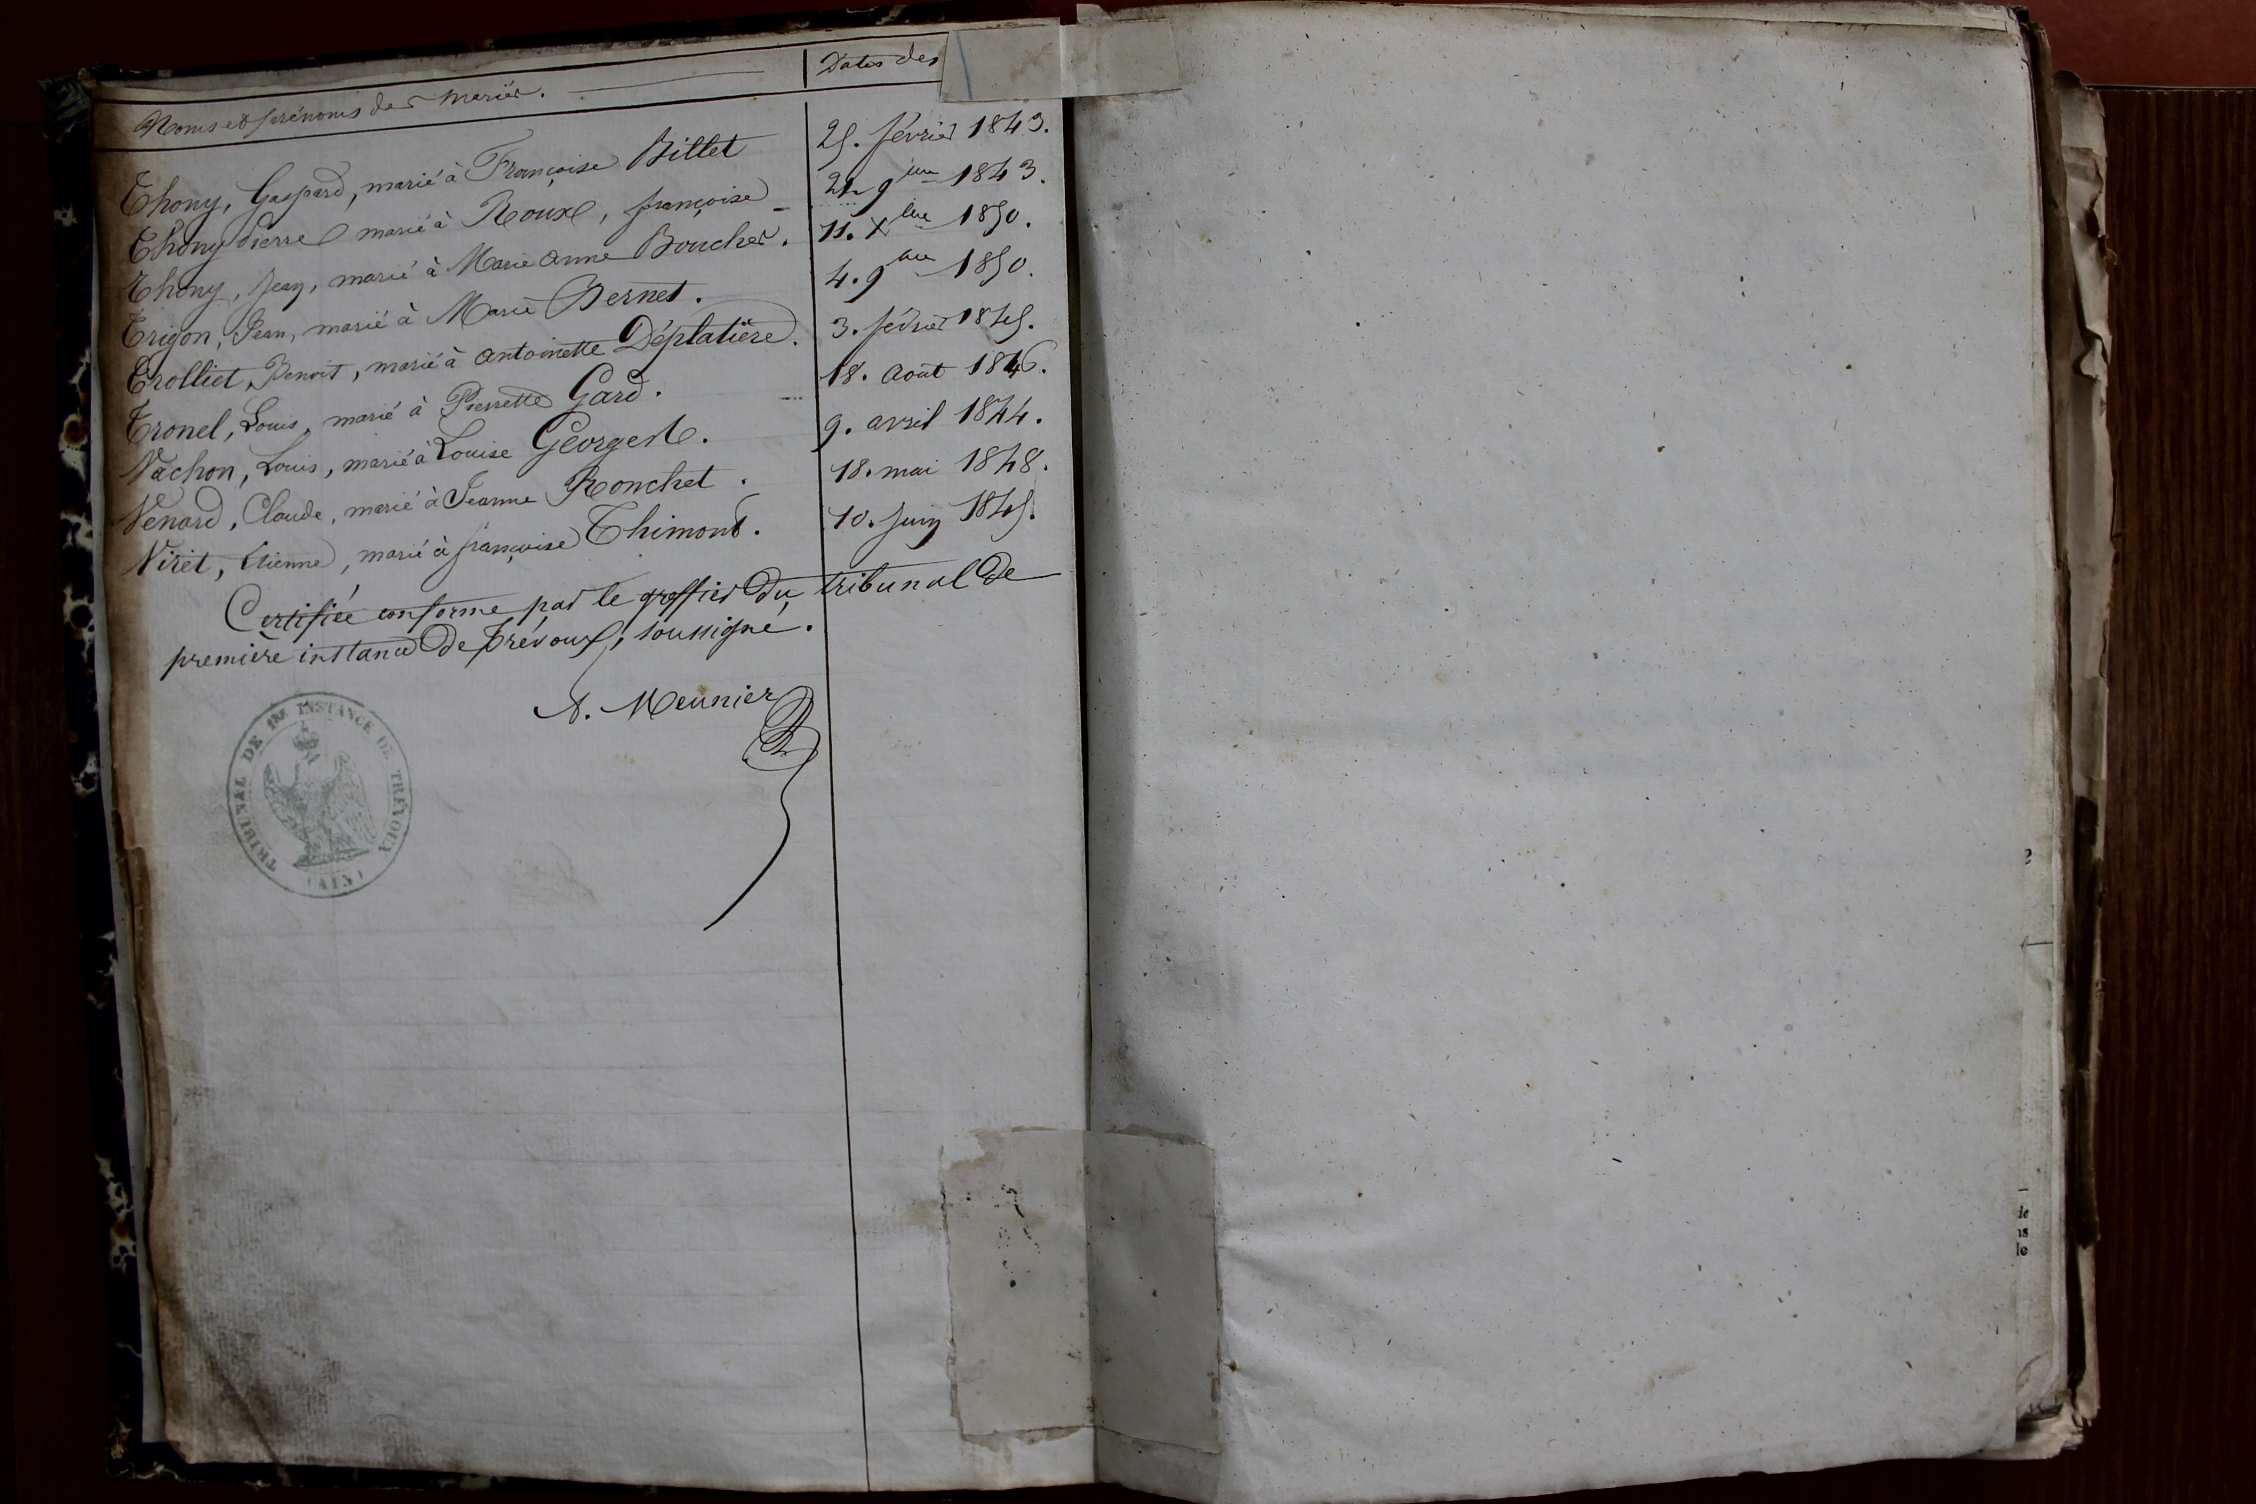 Noms et prénoms des mariés. Dates des
Thony, Gaspard, marié à Françoise Billet 25. février 1843.
Thony Pierre marié à Roux, françoise 21. 9bre 1843.
Thony, Jean, marié à Marie anne Boucher. 11. Xbre 1850.
Trigon, Jean, marié à Marie Bernet. 4. 9bre 1850.
Trolliet, Benoit, marié à antoinette Déplatière. 3. février 1845.
Tronel, Louis, marié à Pierrette Gard. 18. Août 1846.
Vachon, Louis, marié à Louise Georges. 9. avril 1844.
Venard, Claude, marié à Jeanne Ronchet. 18. mai 1848.
Viret, Etienne, marié à françoise Thimont. 10. Juin 1845.
Certifiée conforme par le greffier du tribunal de
première instance de Trévoux, soussigné.
A. Meunier
TRIBUNAL DE 1RE INSTANCE DE TRÉVOUX
(AIN)